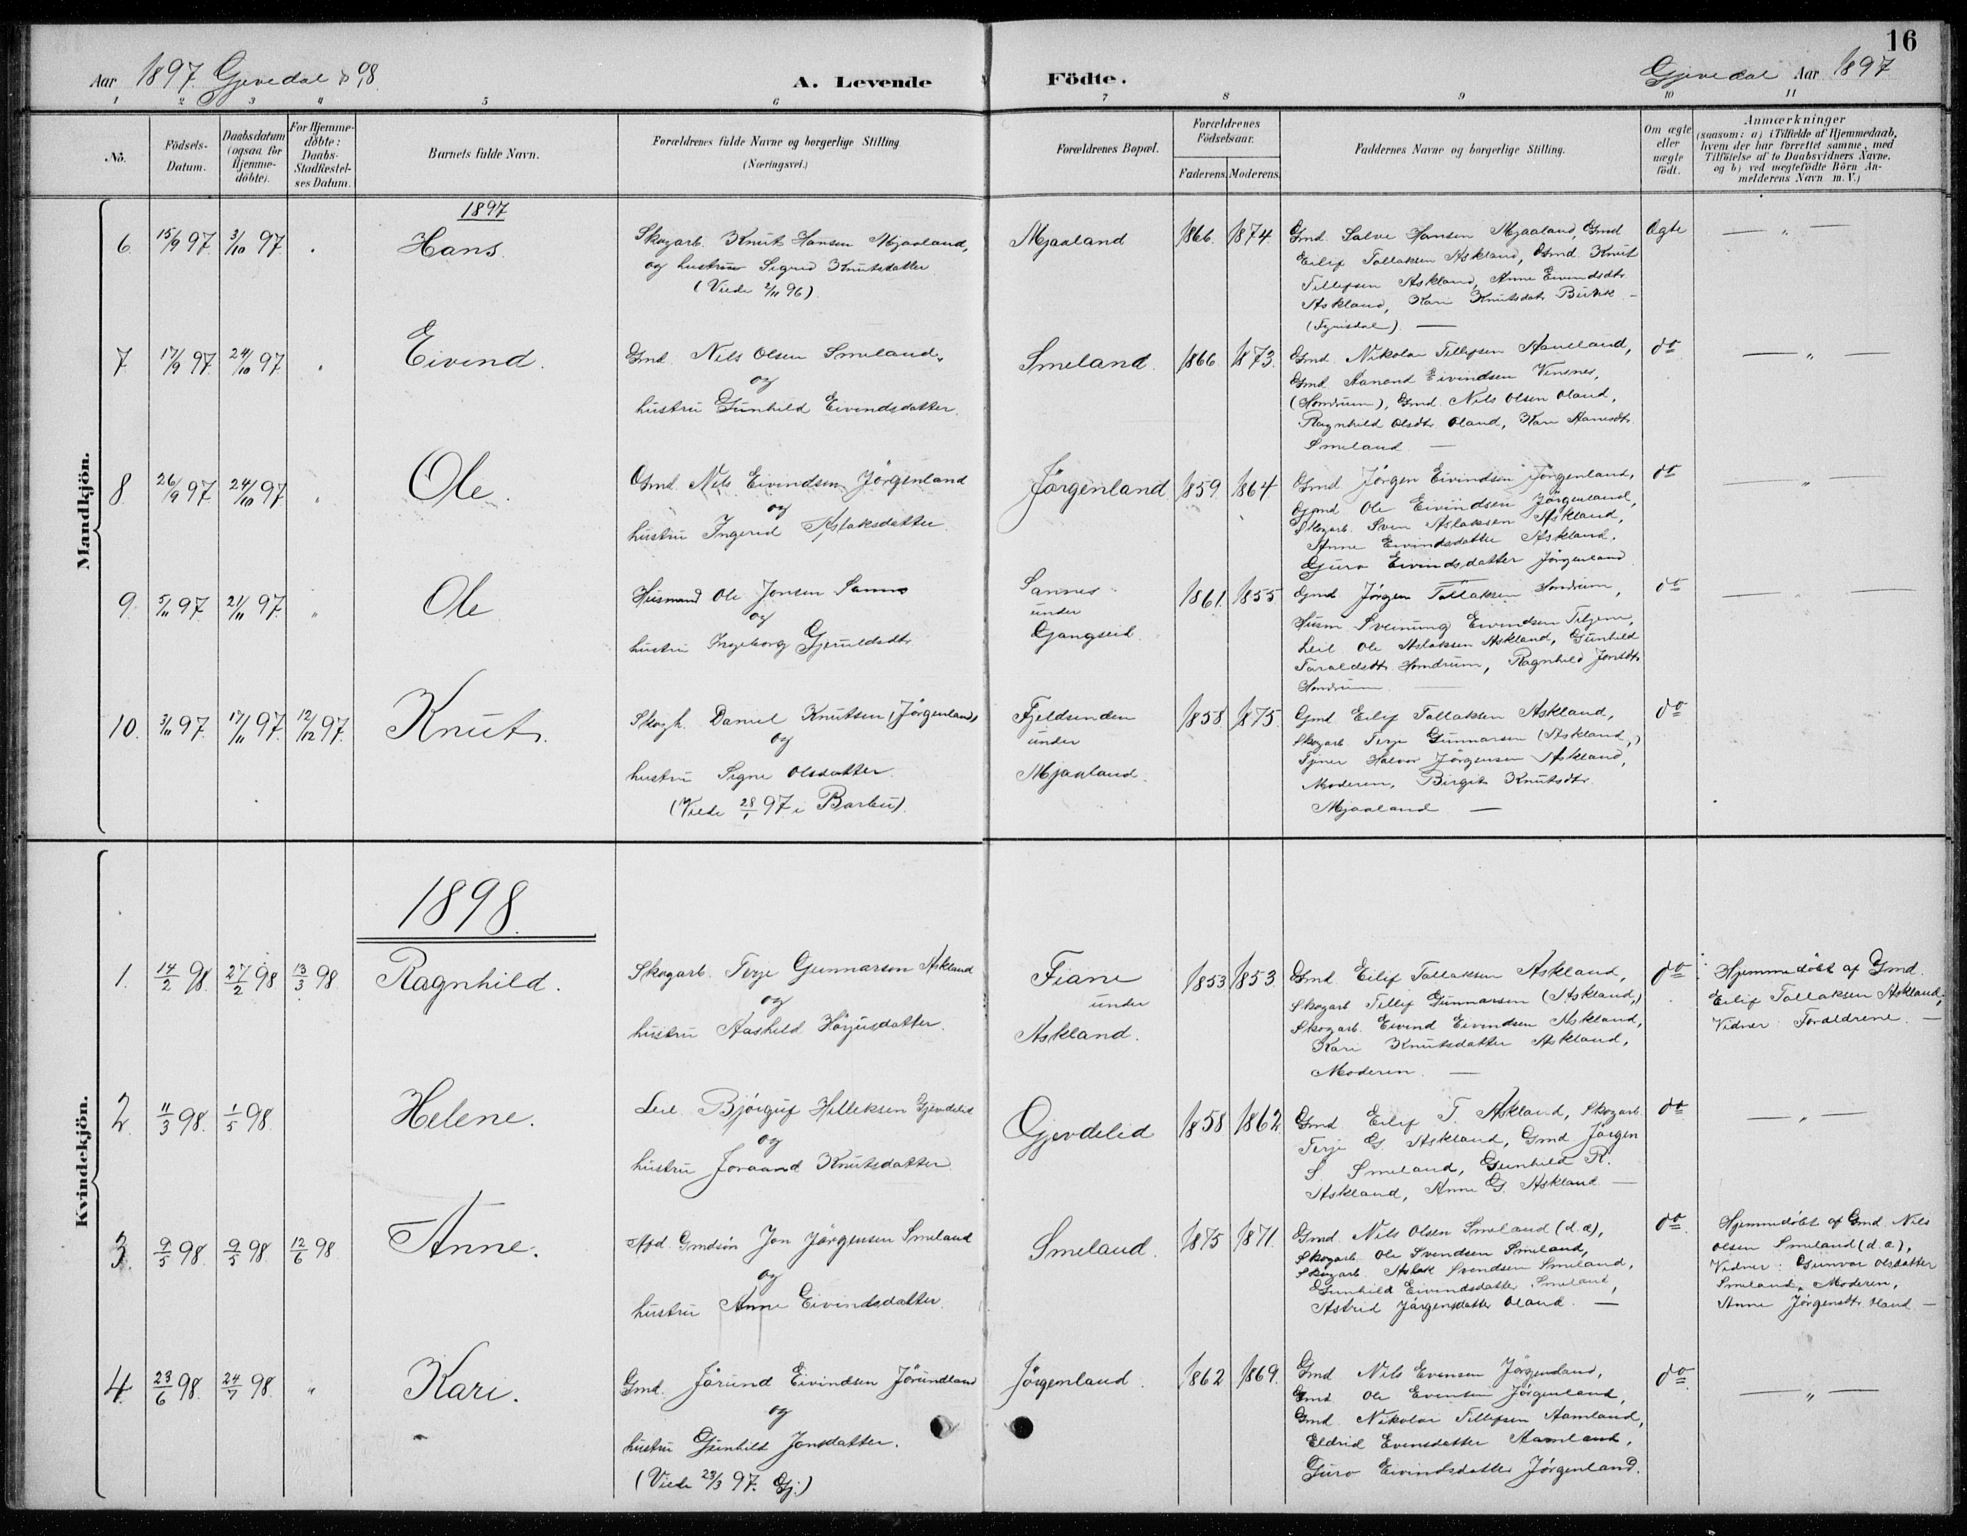 16
Aar 1897 Gjevedal & 98. A. Levende Födte. Gjevedal Aar 1897
1 2 3 4 5 6 7 8 9 10 11
No. Födsels-Datum. Daabsdatum (ogsaa for Hjemmedöbte). For Hjemmedöbte: Daabs-Stadfæstelses Datum. Barnets fulde Navn. Forældrenes fulde Navne og borgerlige Stilling (Næringsvei.) Forældrenes Bopæl. Forældrenes Födselsaar. Faderens. Moderens. Faddernes Navne og borgerlige Stilling. Om ægte eller uægte födt. Anmærkninger
(saasom: a) i Tilfælde af Hjemmedaab,
hvem der har forrettet samme, med
Tilföielse af to Daabsvidners Navne,
og b) ved uægtefödte Börn An-
melderens Navn m. V.)
Mandkjön.
1897
6 15/9 97 3/10 97. Hans Skogarb. Knut Hansen Mjaaland,
og hustru Sigrid Knutsdatter
(Viede 2/11 96)
Mjaaland 1866. 1874. Gmd. Salve Hansen Mjaaland, Gmd
Eilif Tollaksen Askland, Gmd Knut
Tellefsen Askland, Anne Eivindsdtr
Askland, Kari Knutsdatr
(Fyrisdal) —
Ægte — " —
7 17/9 97 24/10 97. Eivind. Gmd. Nils Olsen Smeland
og
hustru Gunhild Eivindsdatter.
Smeland. 1866. 1873. Gmd. Nikolai Tellefsen Aamland,
Gmd. Aanond Eivindsen Vensnes,
(Homdrum), Gmd. Nils Olsen Oland,
Ragnhild Olsdtr Oland, Kari
Smeland —
do — " —
8 26/9 97 24/10 97 Ole. Gmd. Nils Eivindsen Jörgenland
og
hustru Ingerid Aslaksdatter.
Jörgenland 1859. 1864 Gmd Jörgen Eivindsen Jörgenland,
Gmd Ole Eivindsen Jörgenland,
Skogarb. Sven Aslaksen Askland,
Anne Eivindsdatter Askland.
Guro Eivindsdatter Jörgenland
do — " —
9. 5/11 97 21/11 97. " Ole Husmand Ole Jonsen Sannes
og
hustru Ingeborg Gjeruldsdtr
Sannes
under
Gangseid. 1861. 1855 Gmd Jörgen Tollaksen Homdrum,
Husm Sveinung Eivindsen
Leil Ole Aslaksen Askland, Gunhild
Taraldsdtr Homdrum, Ragnhild Jonsdtr
Homdrum. —
do —
10. 3/11 97. 17/11 97 12/12 97. Knut. Skogh. Daniel Knutsen (Jörgenland)
og
hustru Signe Olsdatter.
(Viede 28/1 97 i Barbu).
Fjeldsenden
under
Mjaaland. 1858 1875. Gmd. Eilif Tollaksen Askland,
Skogarb Terje Gunnarsen (Askland,)
Tjener Halvor Jörgensen Askland,
Moderen, Birgit Knutsdtr.
Mjaaland —
do
Kvindekjön.
1898.
1. 14/2 98. 27/2 98 13/3 98 Ragnhild. Skogarb. Terje Gunnarson Askland
og
hustru Aashild Hörjusdatter.
Fiane
under
Askland. 1853 1853. Gmd. Eilif Tollaksen Askland,
Skogarb Tellif Gunnarsen (Askland,)
Skogarb. Eivind Eivindsen Askland,
Kari Knutsdatter Askland,
Moderen. —
do Hjemmedöbt af Gmd.
Eilif Tollaksen Askland,
Vidner: Forældrene. —
2. 11/3 98. 1/5 98. Helene. Leil. Bjórguf Helleksen Gjevdelid
og
hustru Joraand Knutsdatter.
Gjevdelid 1858 1862 Gmd Eilif T. Askland, Skogarb.
Terje G. Askland, Gmd Jörgen
S. Smeland, Gunhild R.
Askland, Anne G. Askland —
do — " —
3. 9/5 98. 9/5 98 12/6 98 Anne. Gmdsön Jon Jörgensen Smeland
og
hustru Anne Eivindsdatter.
Smeland. 1875 1871. Gmd. Nils Olsen Smeland (d.æ),
Skogarb Ole Svendsen Smeland,
Skogarb. Aslak Svendsen Smeland,
Gunhild Eivindsdatter Smeland,
Astrid Jörgensdatter Oland. —
do Hjemmedöbt af Gmd. Nils
Olsen Smeland (d.æ),
Vidner: Gunvor Olsdatter
Smeland, Moderen,
Anne Jörgensdtr. Oland. —
4. 23/6 98. 24/7 98. " Kari. Gmd. Jörund Eivindsen Jörundland
og
hustru Gunhild Jonsdatter.
(Viede 23/3 97. Gj.)
Jörgenland. 1862 1869. Gmd Nils Evensen Jörgenland,
Gmd Ole Evensen Jörgenland,
Gmd. Nikolai Tellefsen Aamland,
Eldrid Evensdatter Aamland,
Guro Eivindsdatter Jörgenland.
do. — " —